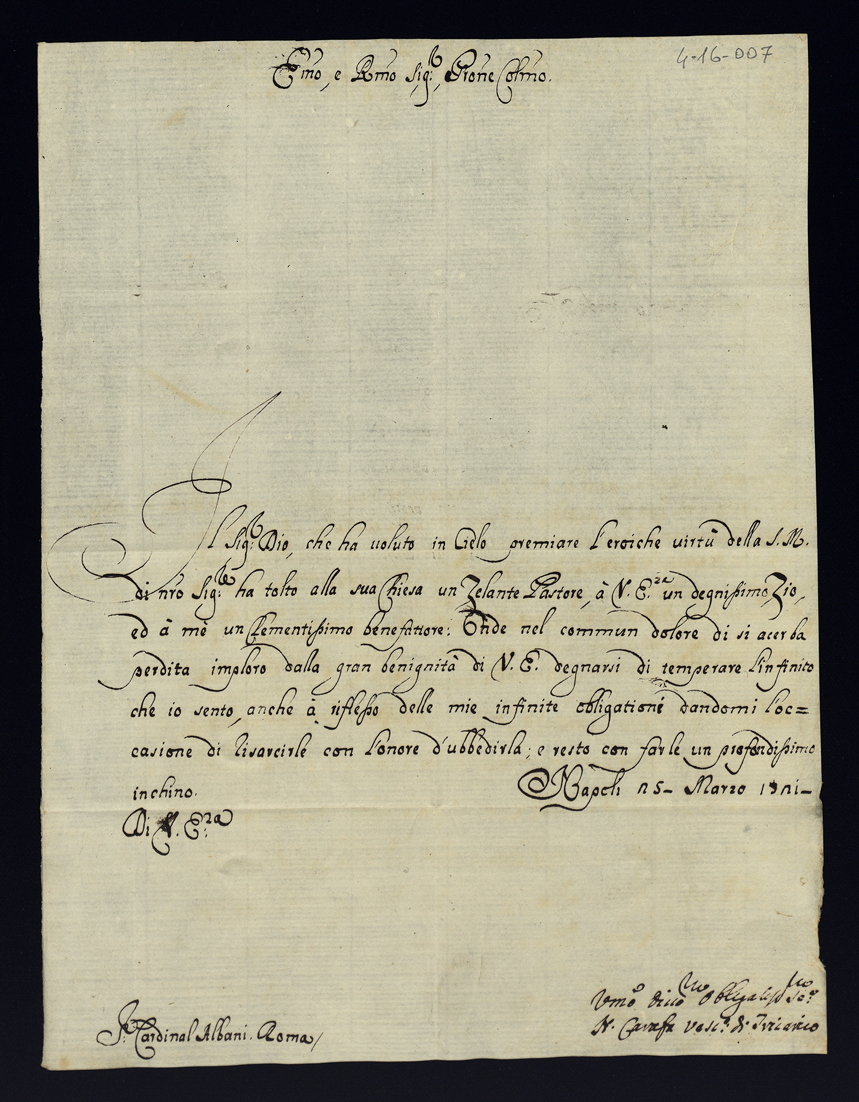 4-16-007
Em̃o, e Rm̃o Sig.r Prõne Colm̃o.
Il Sig.r Dio, che ha voluto in Cielo premiare l'eroiche virtù della S.M.
di nrõ Sig.re ha tolto alla sua Chiesa un Zelante Pastore, à V. E.za un degnissimo Zio,
ed à mè un Clementissimo benefattore: Onde nel commun dolore di sì acerba
perdita imploro dalla gran benignità di V. E. degnarsi di temperare l'infinito
che io sento, anche à riflesso delle mie infinite obligationi dandomi l'oc=
casione di risarcirle con l'onore d'ubbedirla; e resto con farle un profondissimo
inchino. Napoli 25- Marzo 1721-
Di V. E.za
S.r Cardinal Albani. Roma/
Vmõ Obligatiss.mo
N. Carafa Vesc.o di